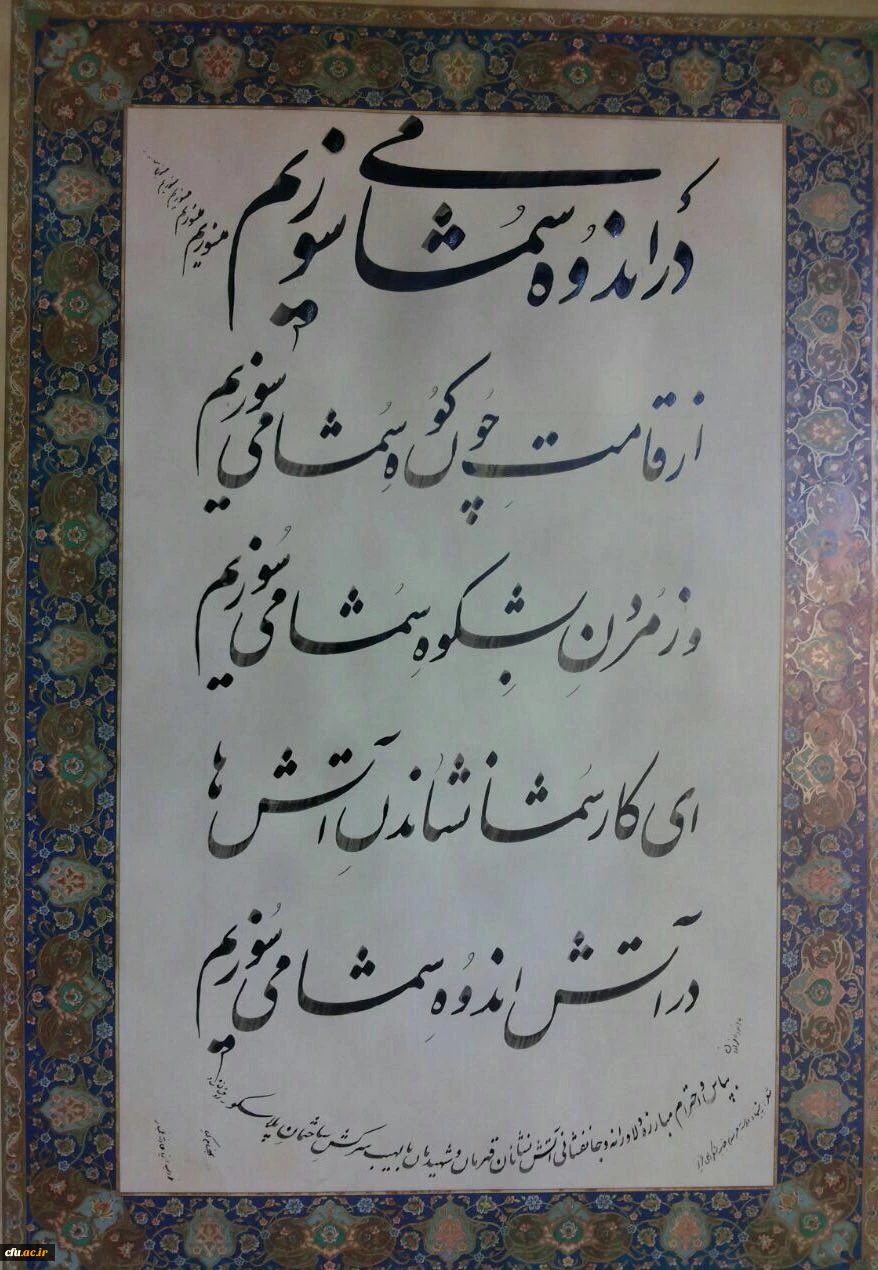 در اندوه شما می سوزیم
میسوزیم
از قامتِ چون کوهِ شما می سوزیم
وز مردنِ بشکوهِ شما می سوزیم
ای کار شما نشاندنِ آتش ها
در آتش اندوهِ شما می سوزیم
بپاس و احترام مبارزه دلاورانه و جانفشانی آتش نشانان قهرمان و شهیدمان با لهیب سرکش ساختمان پلاسکو
cfu.ac.ir